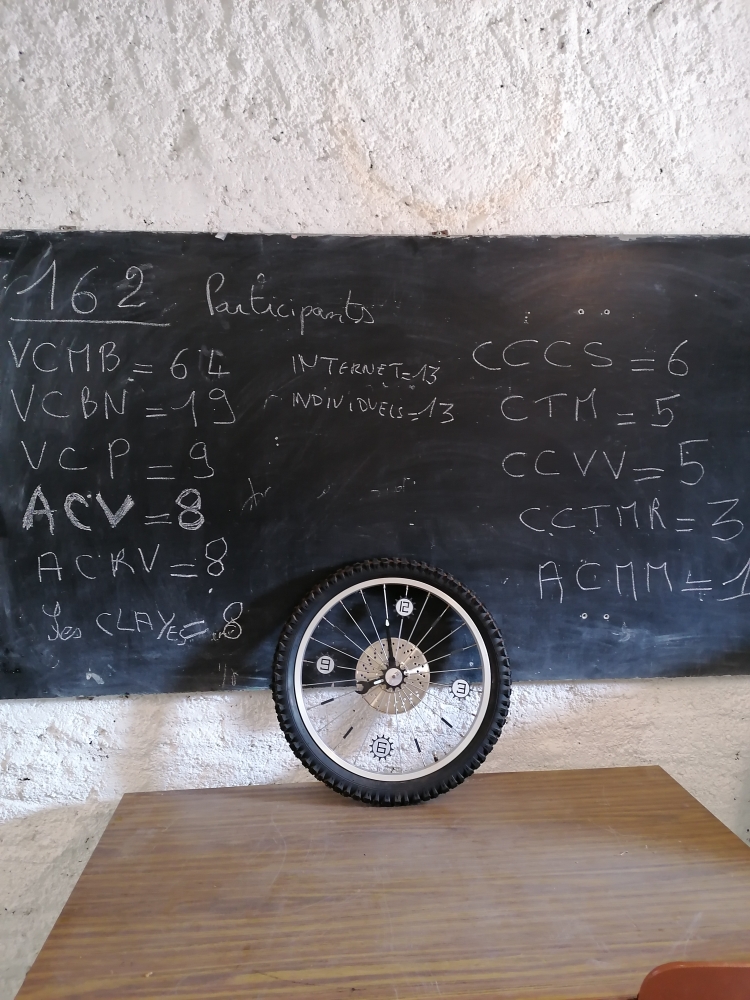 162 Participants
VCMB = 64
VCBN = 19
VCP = 9
ACV = 8
ACRV = 8
Les CLAYES = 8
INTERNET = 13
INDIVIDUELS = 13
CCCS = 6
CTM = 5
CCVV = 5
CCTMR = 3
ACMM = 1
12
3
6
9